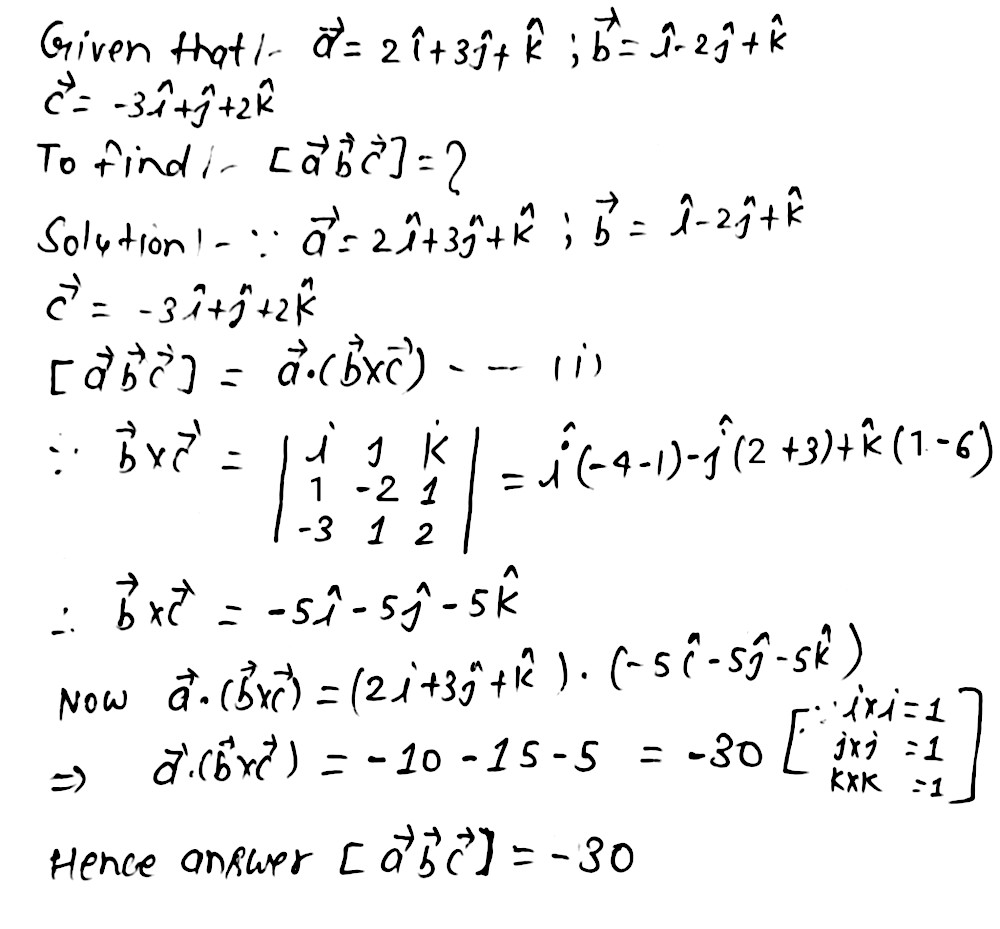 Given that :- a⃗ = 2î+3ĵ+k̂ ; b⃗ = î-2ĵ+k̂
c⃗ = -3î+ĵ+2k̂
To find :- [a⃗ b⃗ c⃗] = ?
Solution :- ∵ a⃗ = 2î+3ĵ+k̂ ; b⃗ = î-2ĵ+k̂
c⃗ = -3î+ĵ+2k̂
[a⃗ b⃗ c⃗] = a⃗.(b⃗×c⃗) - -- (i)
∵ b⃗×c⃗ = | i j k | = î(-4-1)-ĵ(2+3)+k̂(1-6)
1 -2 1
-3 1 2
∴ b⃗×c⃗ = -5î-5ĵ-5k̂
Now a⃗.(b⃗×c⃗) = (2i+3ĵ+k̂).(-5î-5ĵ-5k̂)
⇒ a⃗.(b⃗×c⃗) = -10-15-5 = -30 [∵ i×i=1
j×j =1
k×k =1]
Hence answer [a⃗ b⃗ c⃗] = -30